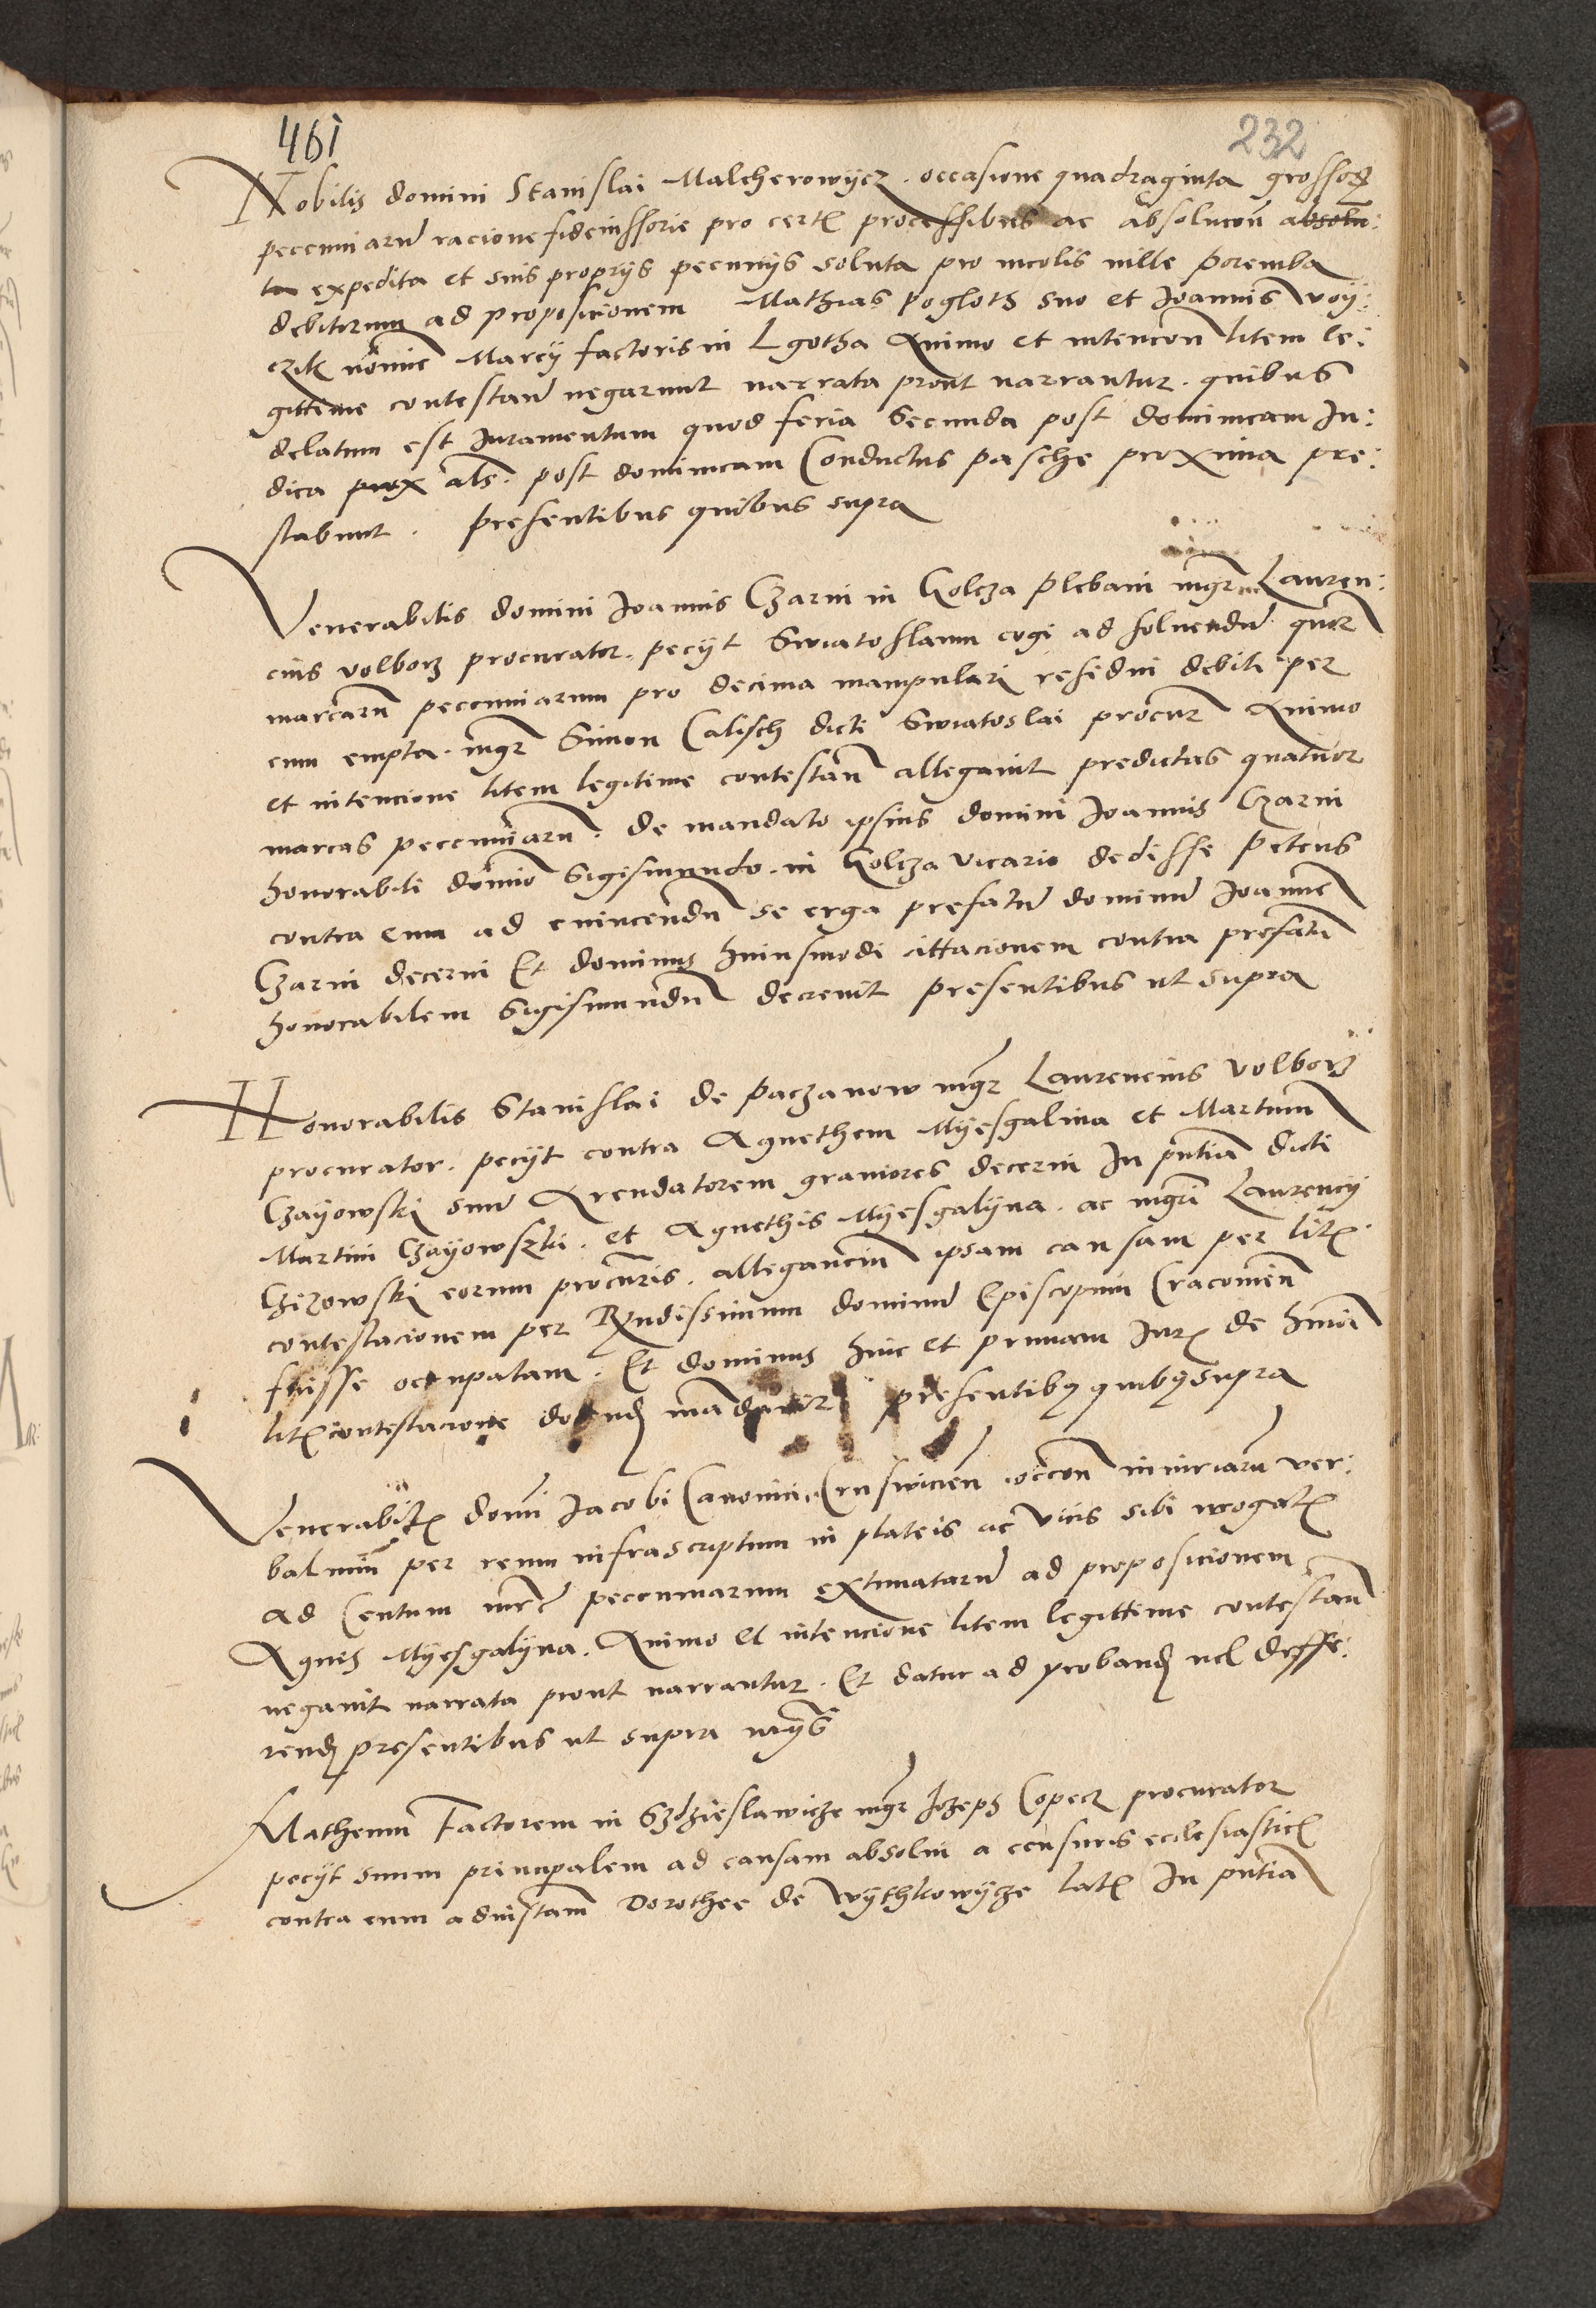 461
232
Nobilis domini Stanislai Malcherowycz . occasione quadraginta grossoꝝ
peccuniarũ racione fideiussorie pro certꝭ processibus ac absolucoñ absolu:
ta expedita et suis proprijs pecunijs soluta pro incolis ville Poremba
debitorum ad proposicionem Mathias Pogloth suo et Joannis Voy:
czik noĩe Marcij factoris in Lgotha Animo et intencoñ litem le:
gittime contestañ negarunt narrata prout narrantur . quibus
delatum est Juramentum quod feria Secunda post dominicam Ju:
dica prox als. post dominicam Conductus pasche proxima pre:
stabunt . presentibus quibus supra
Venerabilis domini Joannis Czarni in Golcza plebani mgr Lauren:
cius volborz procurator . pecijt Swiatoslaum cogi ad soluendũ quatuor
marcarũ peccuniarum pro decima manipulari residui debiti per
eum empta . mgr Simon Calisch dicti Swiatoslai procur Animo
et intencione litem legitime contestañ allegauit predictas quatuor
marcas peccuniarũ . de mandato ipsius domini Joannis Czarni
honorabili domino Sigismundo . in Golcza vicario dedisse petens
contra eum ad euincendũ se erga prefatũ dominũ Joanñe
Czarni decerni Et dominus huiusmodi cittacionem contra prefatũ
honorabilem Sigismundũ decreuit presentibus ut supra
Honorabilis Stanislai de Paczanow mgr Laurencius volborz
procurator . pecijt contra Agnethem Myesgalina et Martinũ
Czayowski suũ Arendatorem grauiores decerni In pñtia dicti
Martini Czayowszki . et Agnethis Myesgalyna . ac mgri Laurencij
Czizowski eorum procuris . allegancium ipsam causam per litꝭ
contestacionem per Rndissimum dominũ Episcopum Cracouieñ
fuisse occupatam . Et dominus hinc et primam Jurꝭ de hmoi
litꝭ contestacione docendꝭ mandauit presentibꝰ quibꝰ supra
Venerabilꝭ domi Jacobi Canonici Cruswicieñ occoñ iniuriarũ ver:
balium per reum infrascriptum in plateis ac vicis sibi irrogatꝭ
ad Centum mrc peccuniarum extimatarũ ad proposicionem
Agnes Myesgalyna . Animo et intencione litem legittime contestañ
negauit narrata prout narrantur . Et datur ad probandꝭ vel deffe:
rendꝭ presentibus ut supra
Matheum Factorem in Szdzieslawicze mgr Jozeph Copecz procurator
pecijt suum principalem ad causam absolui a censuris ecclesiasticꝭ
contra eum ad instanm Dorothee de Wythkowycze latꝭ In pñtia